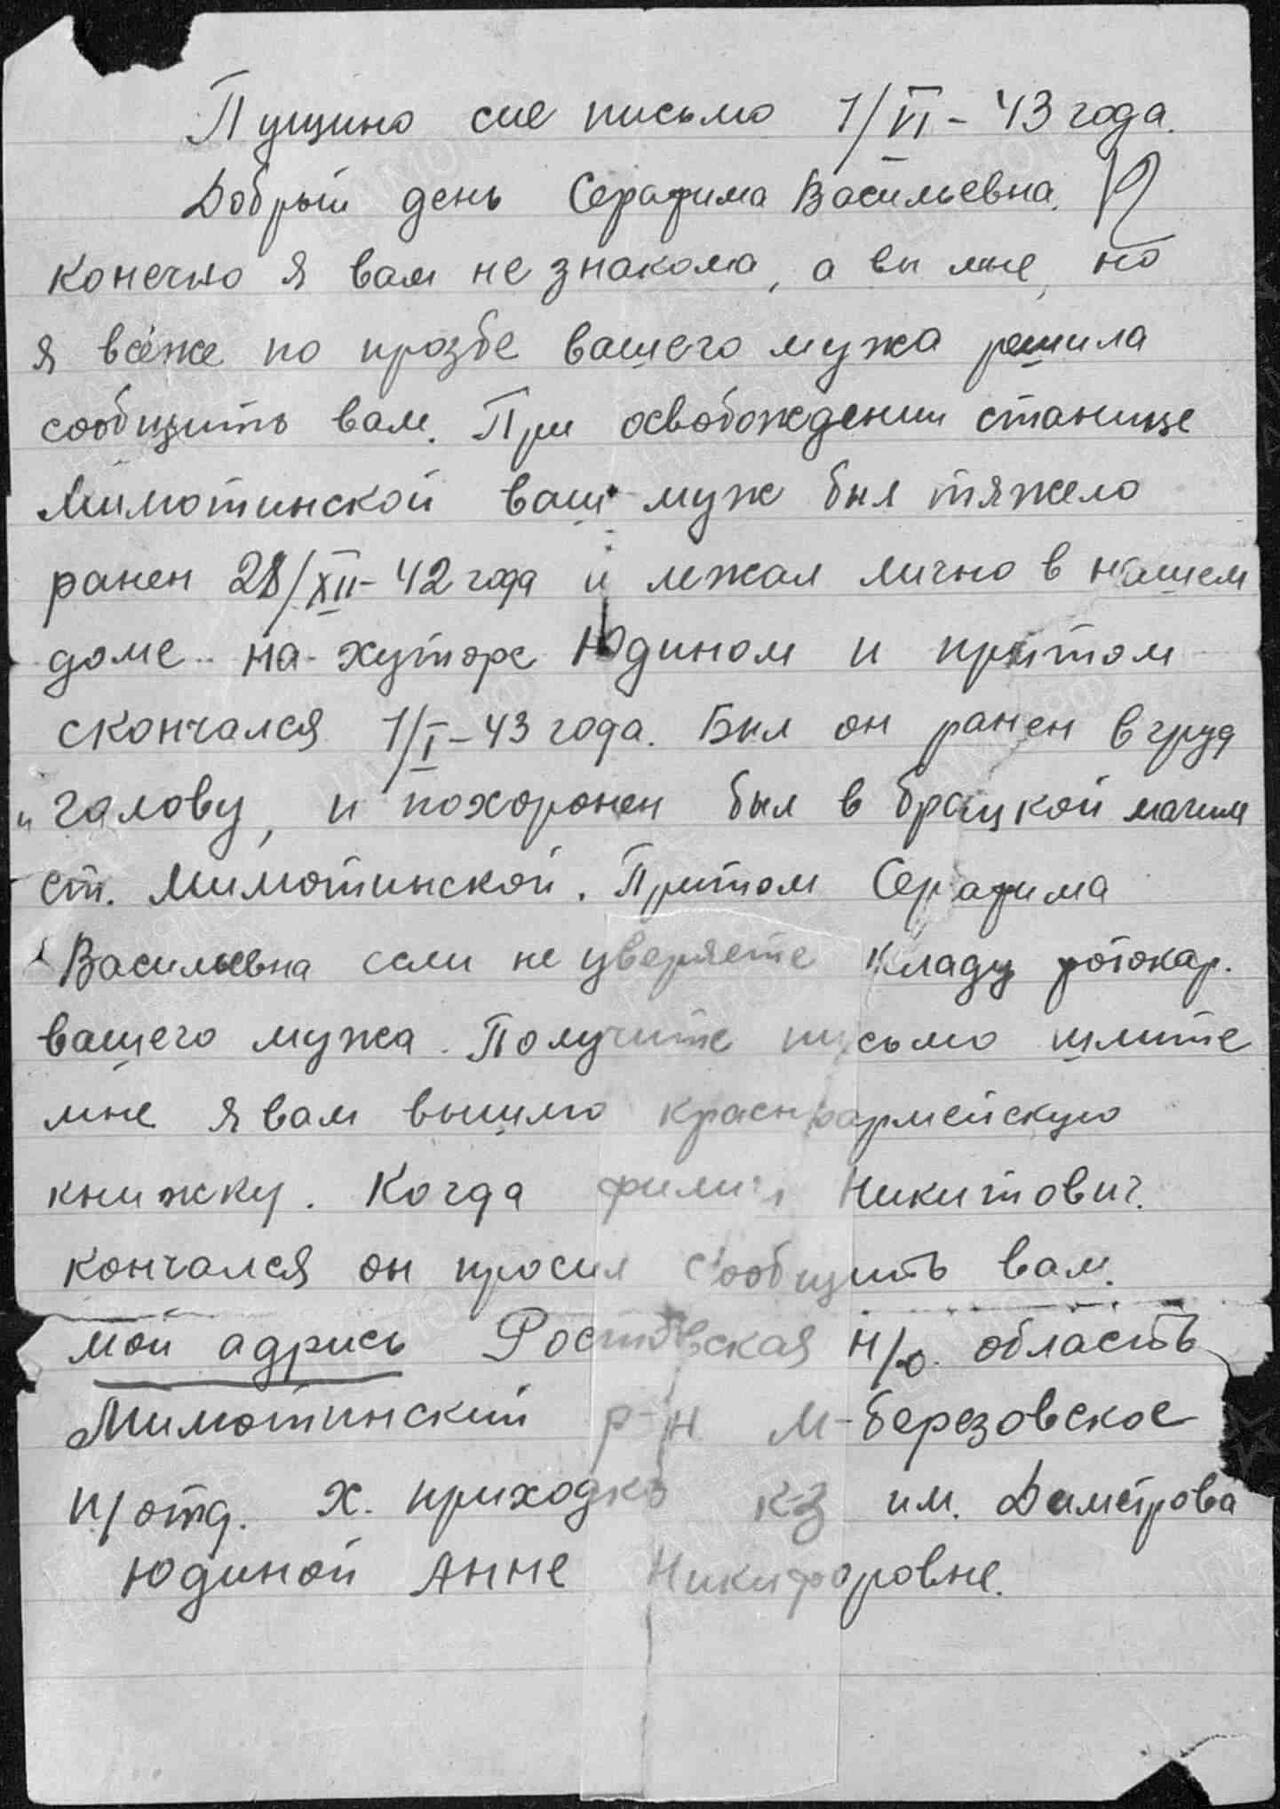 Пущино сие письмо 1/VI – 43 года.
Добрый день Серафима Васильевна.
конечно я вам не знакома, а вы мне, но
я всёже по прозбе вашего мужа решила
сообщить вам. При освобождении станице
Милютинской ваш муж был тяжело
ранен 28/XII – 42 года и лежал лично в нашем
доме на хуторе Юдином и притом
скончался 1/I – 43 года. Был он ранен в груд
и галову, и похоронен был в брацкой магили
ст. Милютинской. Притом Серафима
Васильевна если не уверяете кладу фотокар.
вашего мужа. Получите письмо шлите
мне я вам вышлю красноармейскую
книжку. Когда Филип Никитович.
кончался он просил сообщить вам.
мой адрись Ростовская н/Д. область
Милютинский р-н М-березовское
п/отд. х. приходько к-з им. Диметрова
Юдиной Анне Никифоровне.